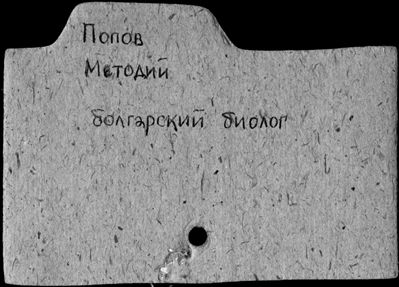 Попов
Методий
болгарский биолог